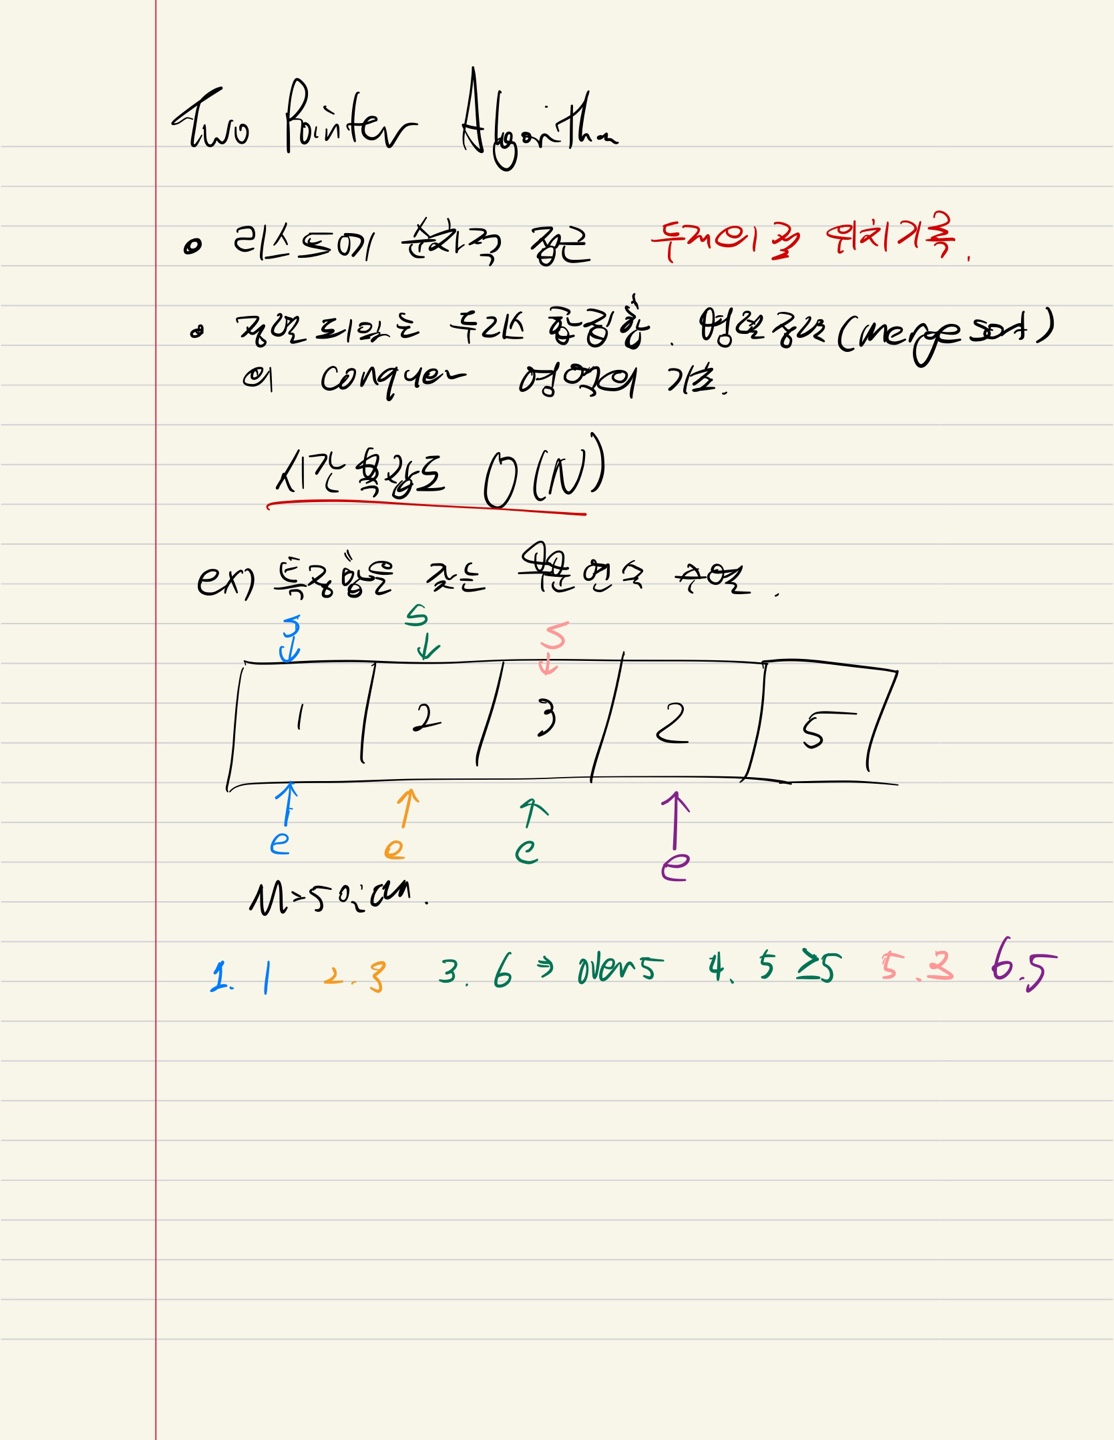 Two Pointer Algorithm
• 리스트에 순차적 접근 두개의 점 위치 기록.
• 정렬 되있는 두 리스트 합집합. 병렬정렬 (merge sort)
의 conquer 영역의 기초.
시간 복잡도 O(N)
ex) 특정합을 갖는 부분 연속 수열.
s s s
1 2 3 2 5
e e e e
M=5 일 때.
1. 1 2. 3 3. 6 → over 5 4. 5 ≥5 5. 3 6. 5